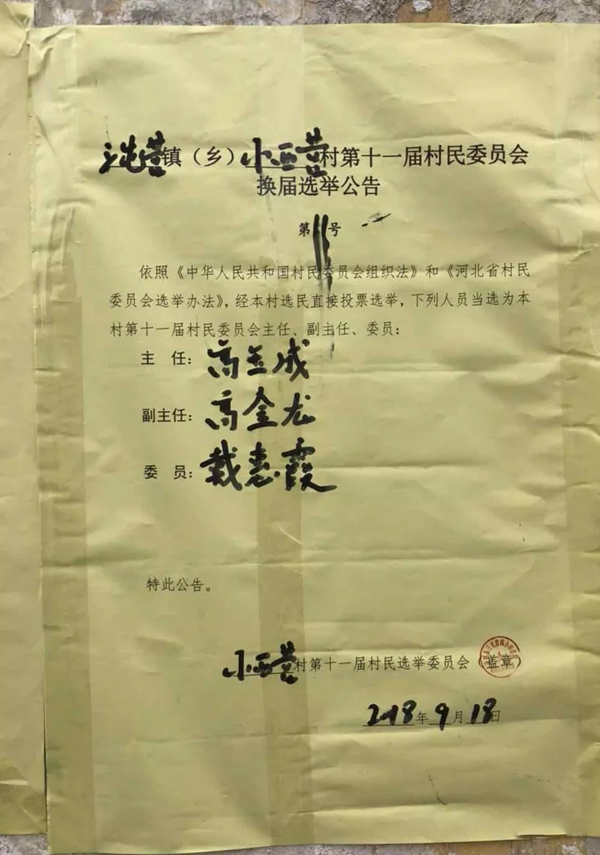 营镇（乡）小西营村第十一届村民委员会
换届选举公告
第 号
依照《中华人民共和国村民委员会组织法》和《河北省村民
委员会选举办法》，经本村选民直接投票选举，下列人员当选为本
村第十一届村民委员会主任、副主任、委员：
主 任：高兰成
副主任：高金龙
委 员：戴惠霞
特此公告。
小西营村第十一届村民选举委员会 盖章
2018年9月18日